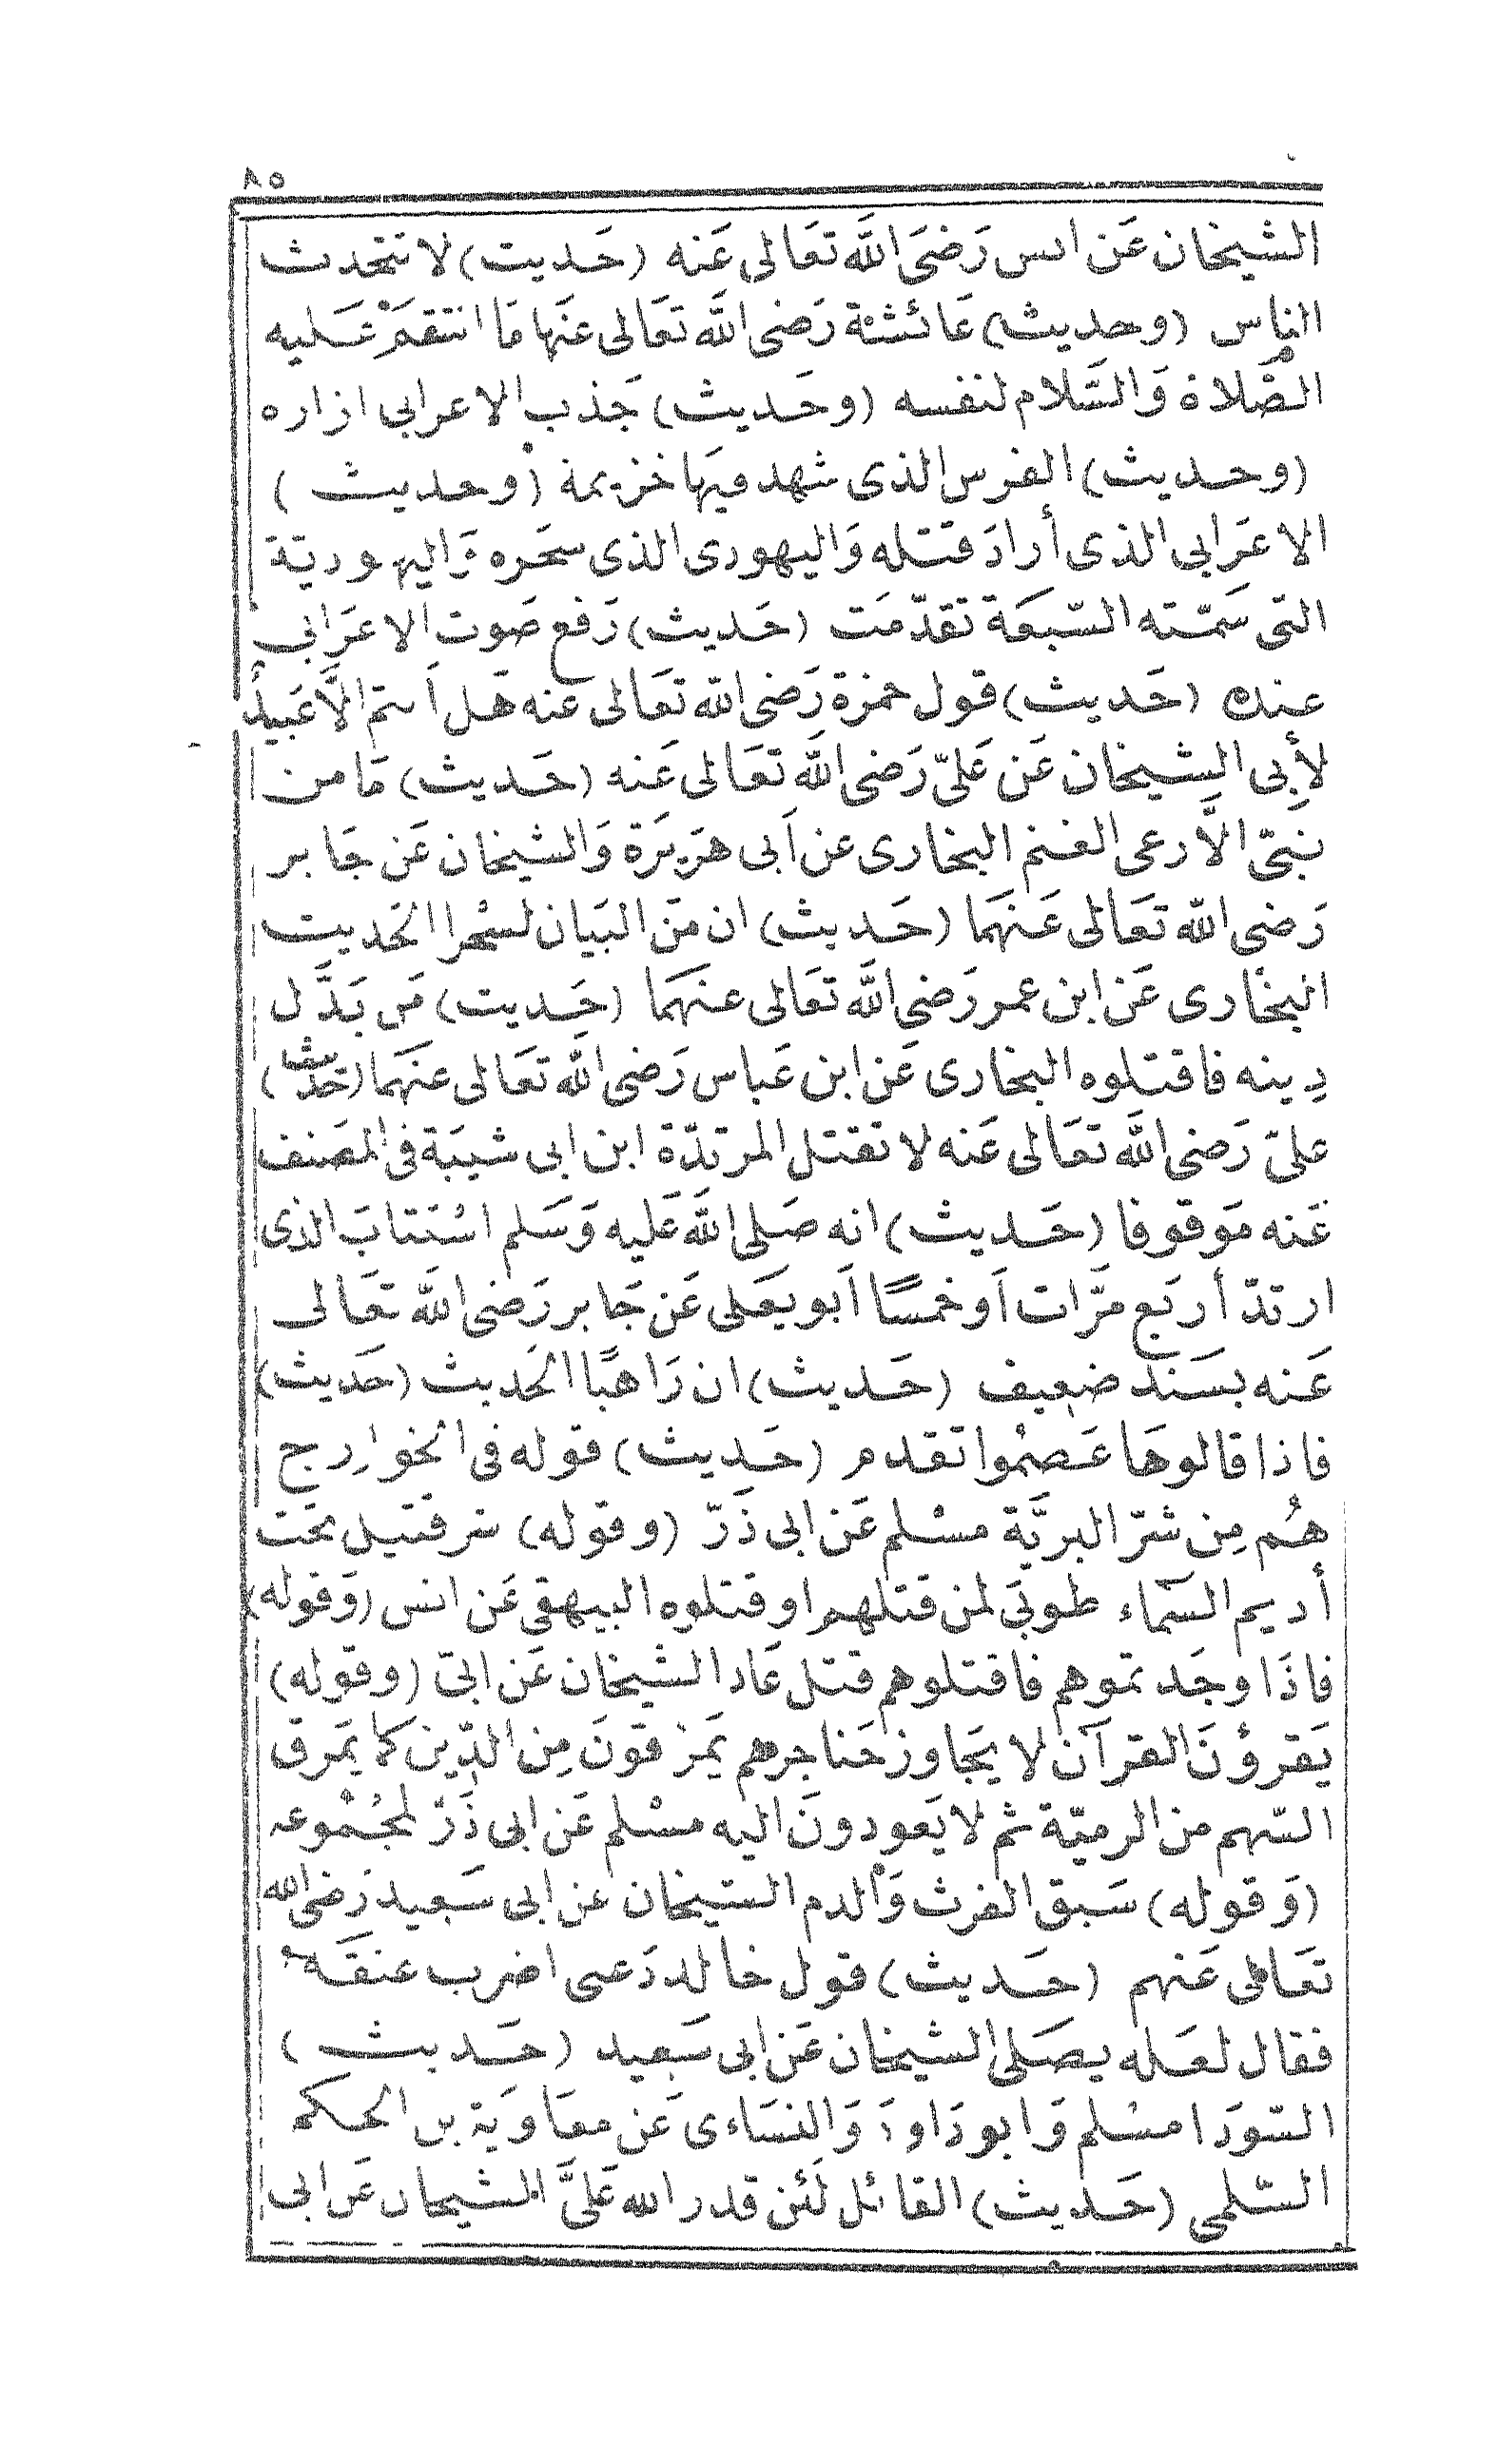 ٨٥
الشيخان عَن انس رَضىَ اللَّه تعَالى عَنه (حَديث) لا تتحدث
الناس (وحديث) عَائشة رَضى اللَّه تعَالى عنَها مَا انتقمَ عَليه
الصَّلاة وَالسَّلام لنفسه (وحَديث) جَذب الاعرابى ازاره
(وحديث) الفرس الذى شهد فيهَا خزيمة (وحديث)
الاعرَابى الذى أرادَ قتله وَاليهودى الذى سحَره وَاليهودية
التى سَمّته السّبعَة تقدّمَت (حَديث) رَفع صَوت الاعرَابى
عندك (حَديث) قول حمزة رَضى اللّه تعَالى عنه هَل أنتم الَّا عَبيدٌ
لأبى الشيخان عَن عَلىّ رَضى اللَّه تعَالى عَنه (حَديث) مَا من
نَبىّ الَّا رعى الغنم البخارى عن اَبى هرَيرَة وَالشيخان عَن جَابر
رَضى اللّه تعَالى عَنهمَا (حَديث) ان منَ البَيان لسحْرا الحَديث
البخَارى عَن ابن عمر رَضى اللَّه تعَالى عنهمَا (حَديث) مَن بَدَّل
دِينه فاقتلوه البخارى عَن ابن عَباس رَضى اللَّه تعَالى عنهَما (حَديث)
علىّ رَضى اللَّه تعَالى عَنه لا تقتل المرتدّة ابن ابى شيبَة فى المصَنف
عَنه مَوقوفا (حَديث) انه صَلى اللَّه عَليه وَسَلم اسْتتابَ الذى
ارتدّ أربَع مرّات اَو خمسًا اَبو يعَلى عَن جَابر رَضى اللَّه تعَالى
عَنه بسَنَد ضعيف (حَديث) ان رَاهبًا الحَديث (حَديث)
فاذا قالوهَا عَصمْوا تقدم (حَديث) قوله فى الخوارِج
هُم مِن شرّ البريَّة مسْلم عَن ابى ذَرّ (وقوله) شر قتيل تحَت
أديم السّمَاء طوبىَ لمن قتلهم او قتلوه البيهقى عَن انس (وَقوله)
فاذَا وجَدتموهم فاقتلوهم قتل عَاد الشيخان عَن ابىّ (وقوله)
يَقرؤنَ القرآن لا يجَاوز حَناجرهم يَمرقونَ مِن الدّين كما يَمرق
السّهم من الرميّة ثم لا يَعودونَ اليه مسْلم عَن ابى ذَرّ لمجُمْوعه
(وَقوله) سَبق الفرث وَالدم الشيخان عن ابى سَعيد رَضى الله
تعَالى عَنهم (حَديث) قول خالد دَعنى اضرب عنقَه
فقال لعَله يصَلى الشيخان عَن ابى سَعيد (حَديث)
السّودَا مسْلم وَابو دَاود وَالنسَاءى عَن معَاويَة بن الحكم
السّلمى (حَديث) القائل لَئن قدر اللّه عَلىَّ الشيخان عَن ابى